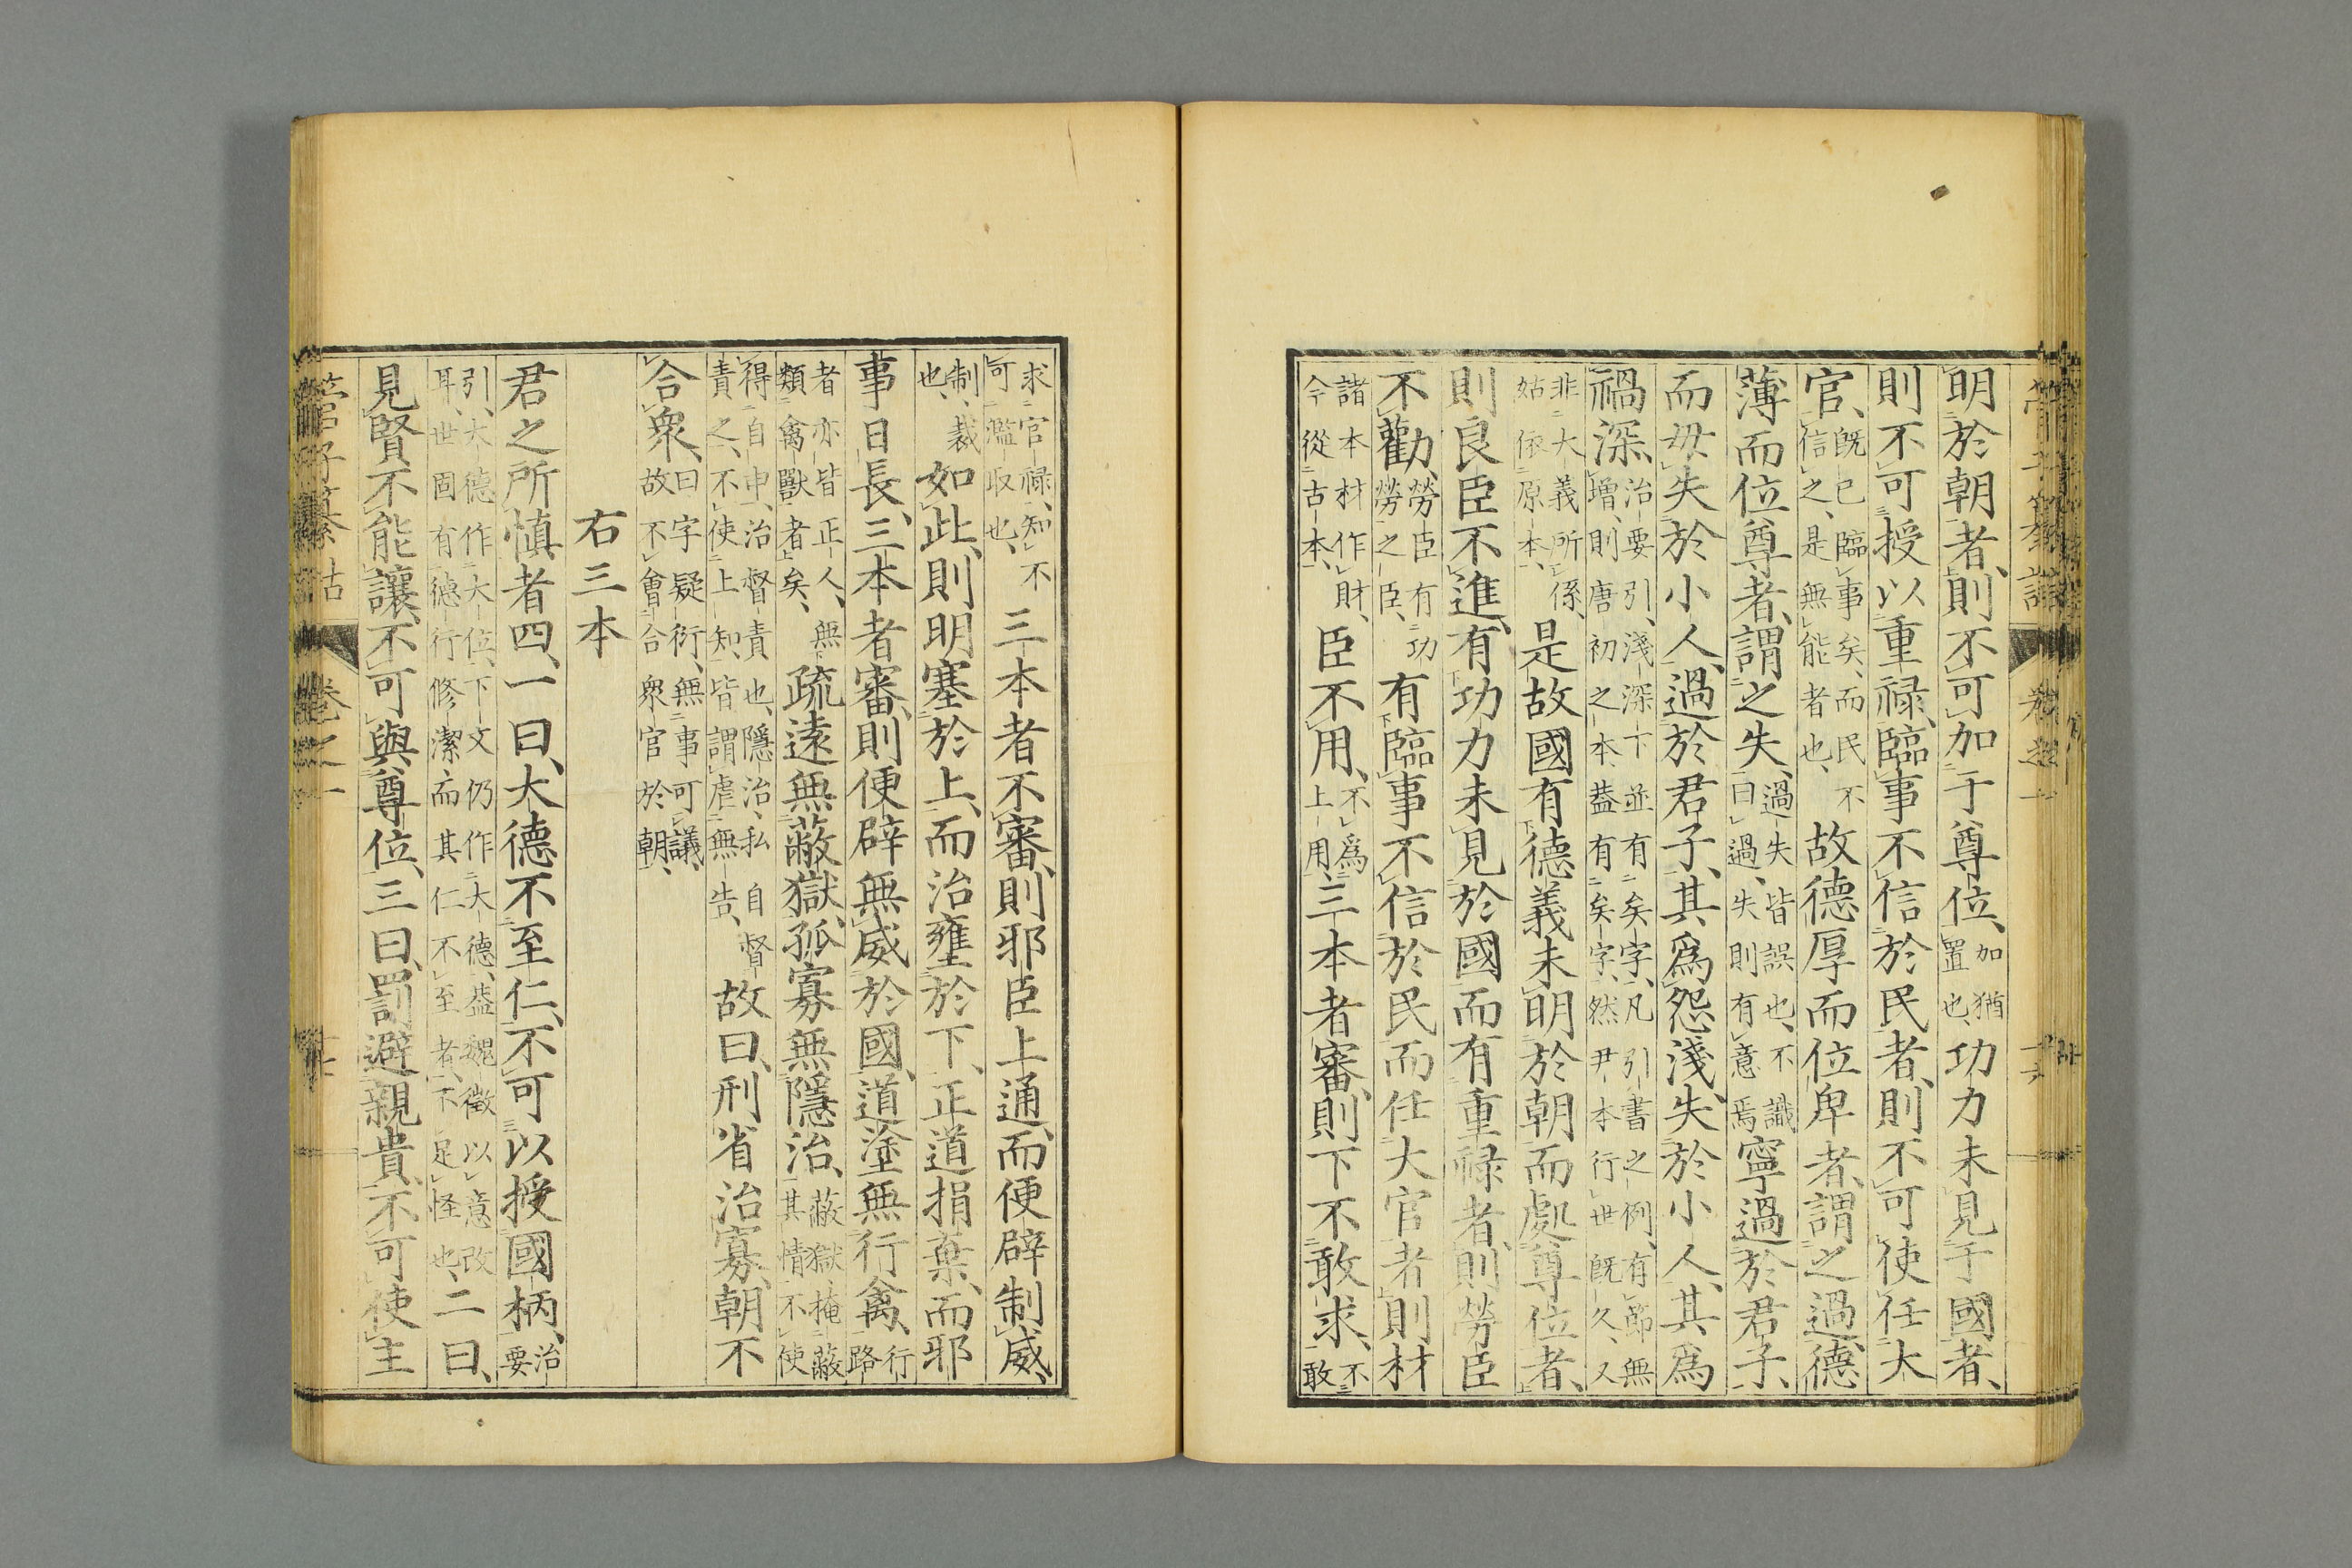 明於朝者、則不可加于尊位、加猶置也、功力未見于國者、
則不可授以重祿、臨事不信於民者、則不可使任大
官、既已臨事矣、而民不信之、是無能者也、故德厚而位卑者、謂之過、德
薄而位尊者、謂之失、過失皆誤也、不識曰過、失則有意焉、寧過於君子、
而毋失於小人、過於君子、其爲怨淺、失於小人、其爲
禍深、治要引、淺深下並有有矣字、凡引書之例、有節無增、則唐初之本、蓋有矣字、然尹本行世既久、又
非大義所係、姑依原本、是故國有德義未明於朝而處尊位者、
則良臣不進、有功力未見於國而有重祿者、則勞臣
不勸、勞臣有功勞之臣、有臨事不信於民而任大官者、則材
諸本材作財、今從古本、臣不用、不爲上用、三本者審、則下不敢求、不敢
求官祿、知不可濫取也、三本者不審、則邪臣上通、而便辟制威、
制、裁也、如此、則明塞於上、而治壅於下、正道捐棄、而邪
事日長、三本者審、則便辟無威於國、道塗無行禽、行路
者亦皆正人、無類禽獸者矣、疏遠無蔽獄、孤寡無隱治、蔽獄、掩蔽其情不使
得自申、治督責也、隱治、私自督責之、不使上知、皆謂虐無告、故曰、刑省治寡、朝不
合衆、曰字疑衍、無事可議、故不會合衆官於朝、
右三本
君之所慎者四、一曰、大德不至仁、不可以授國柄、治要
引、大德作大位、下文仍作大德、蓋魏徵以意改耳、世固有德行修潔、而其仁不至者、不足怪也、二曰、
見賢不能讓、不可與尊位、三曰、罰避親貴、不可使主
管子纂詁 卷之一